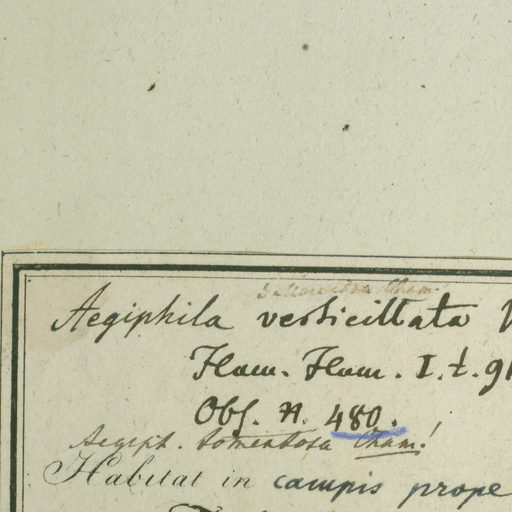 Cham.
Aegiphila verticillata V
Flum. Flum. I. t. 91
Obs. N. 480.
Aegiph. tomentosa Cham!
Habitat in campis prope